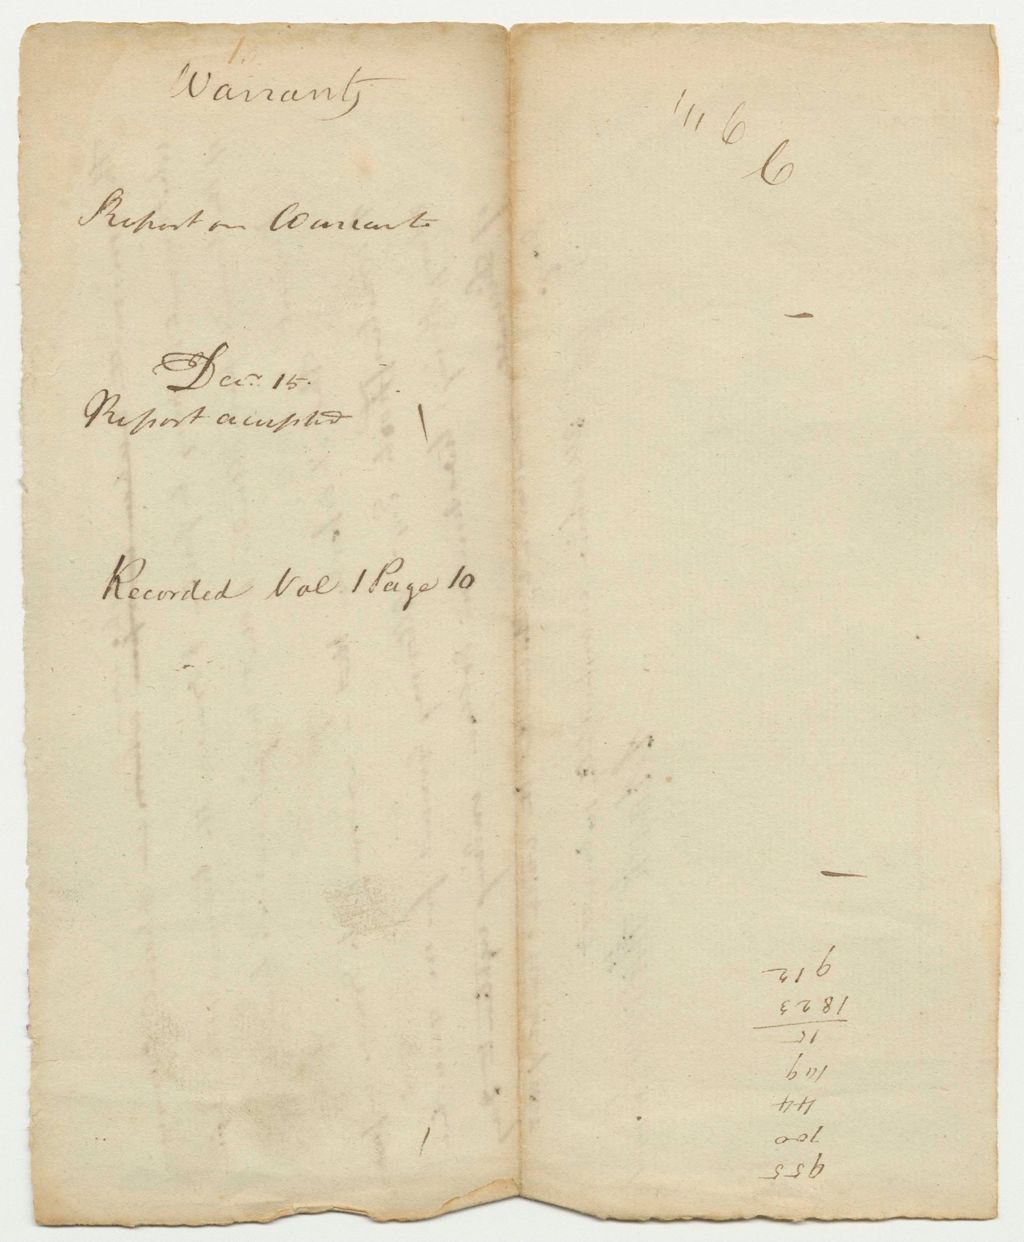 Warrants
Report on Warrants
Decr. 15.
Report accepted
Recorded Vol. 1 Page 10
955
700
44
109
15
1823
912